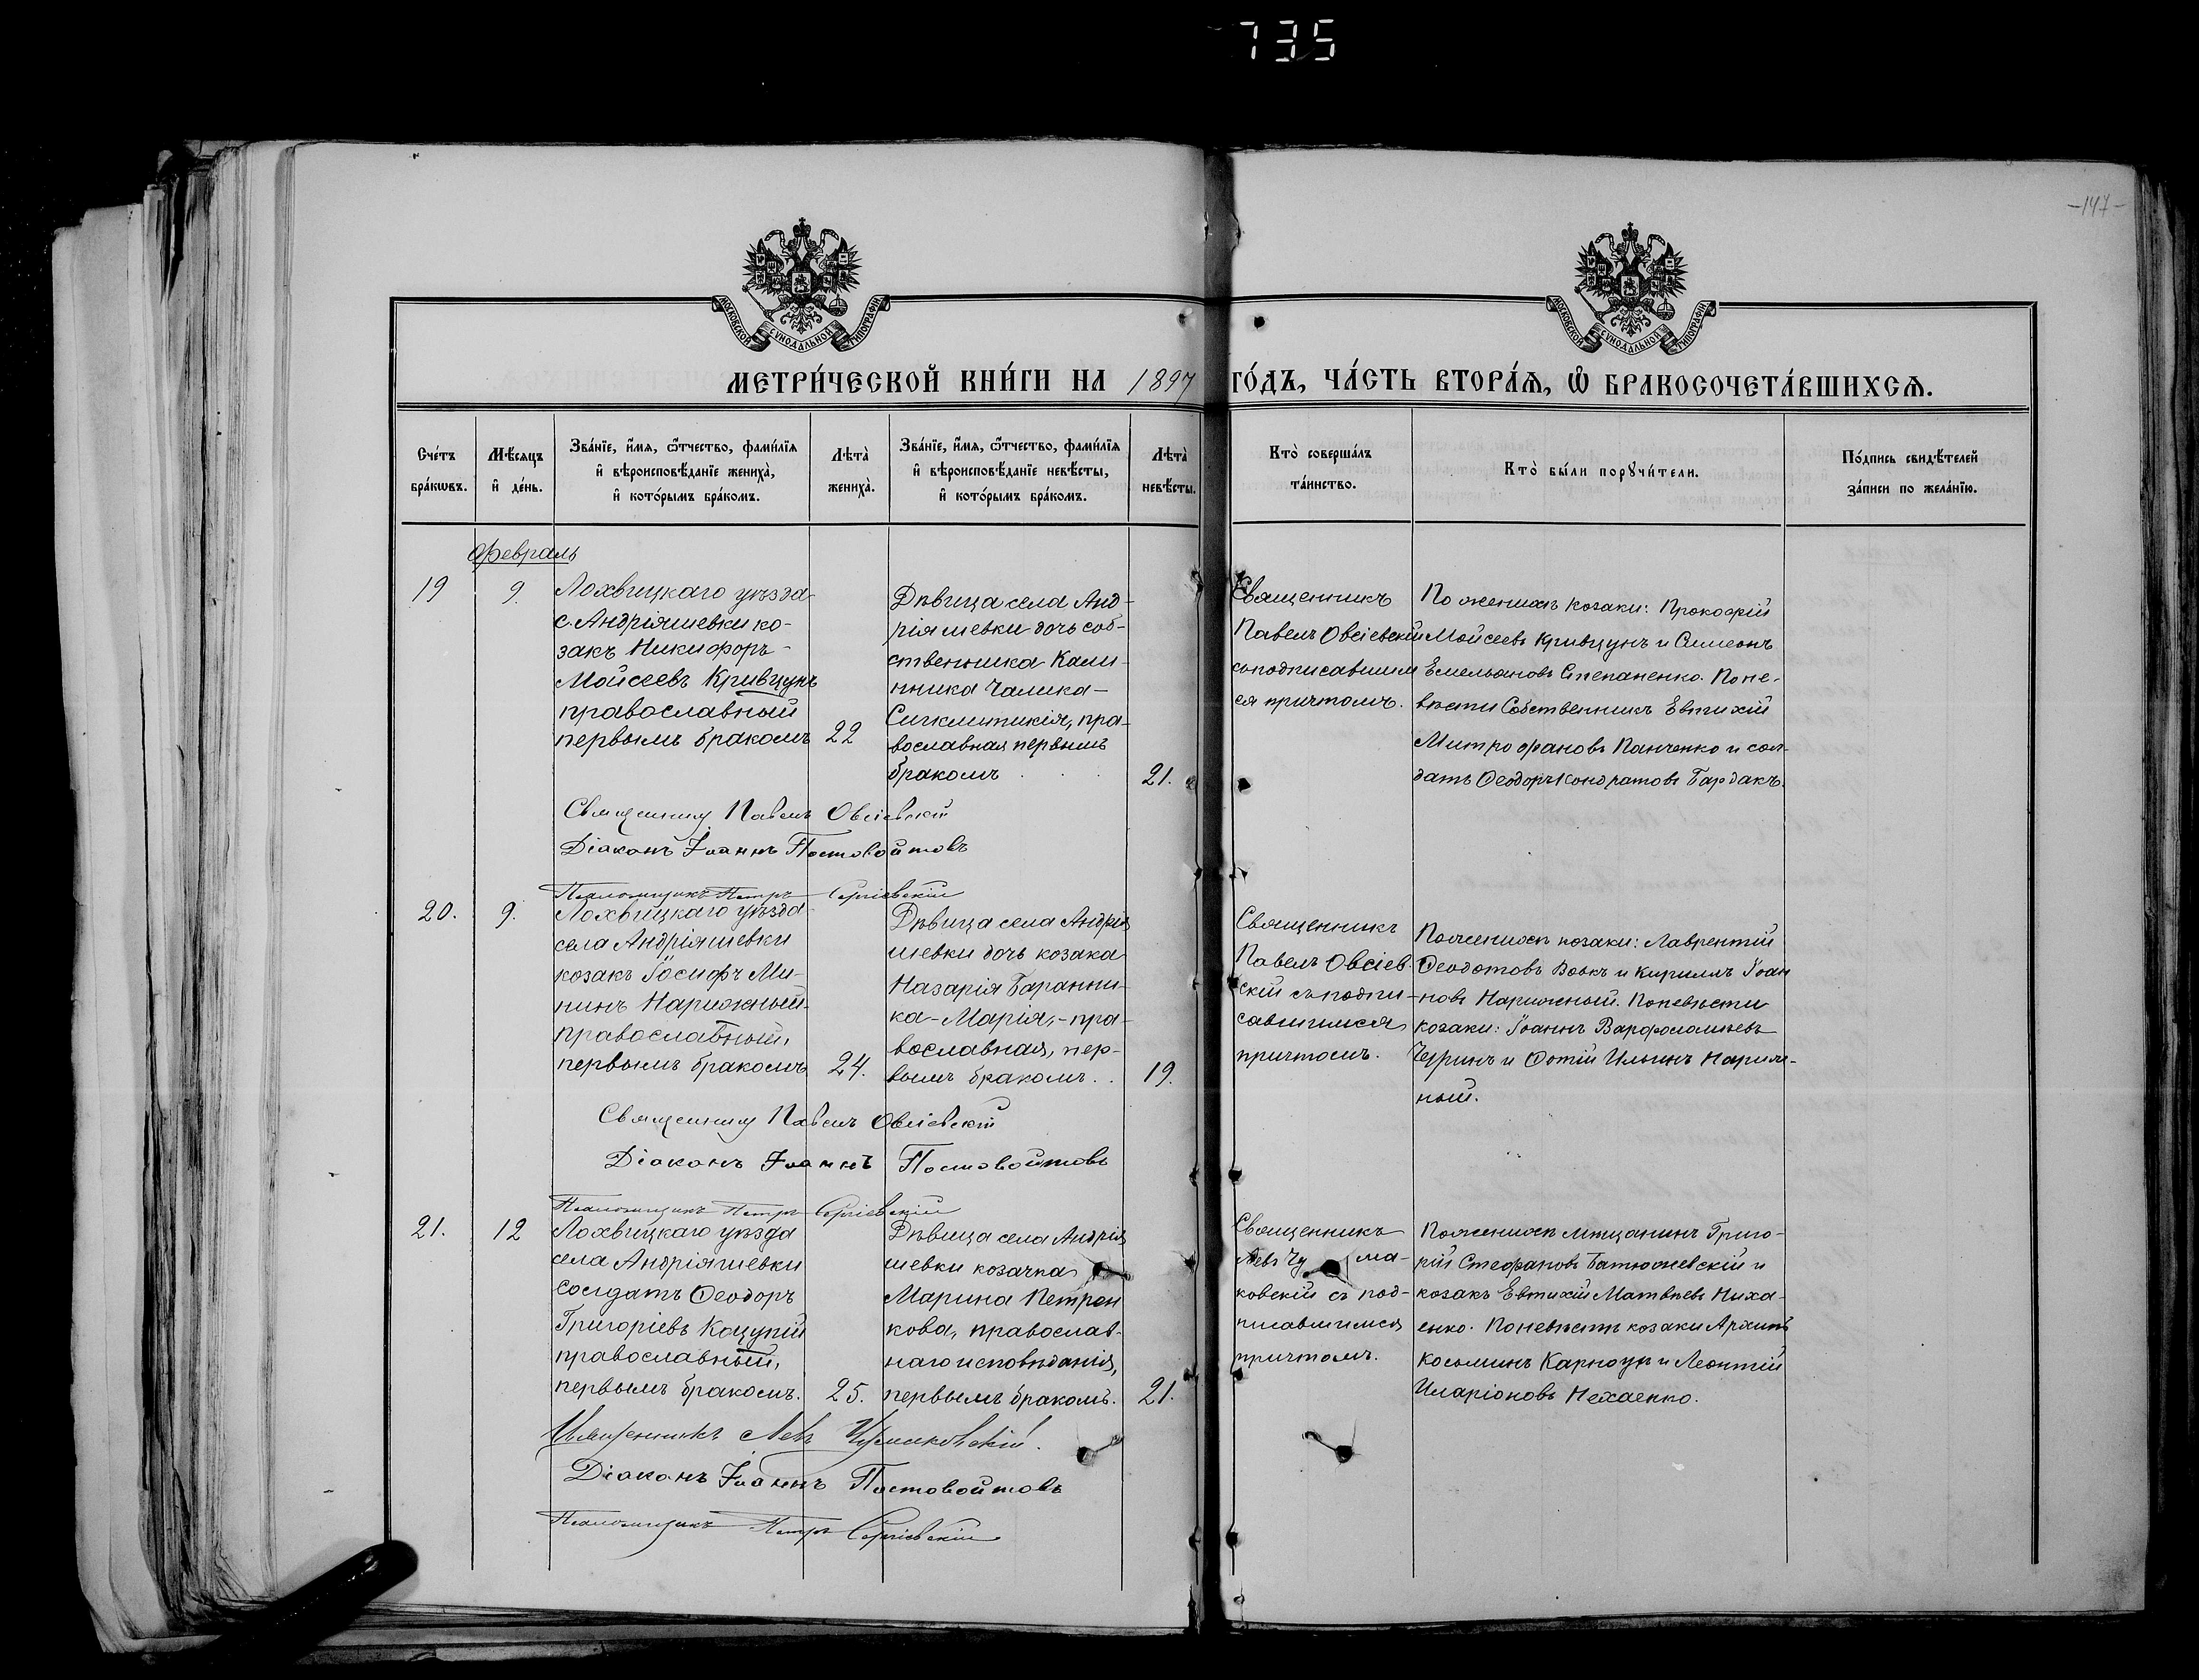 735
-147-
МОСКОВСКОЙ СУНОДАЛЬНОЙ ТИПОГРАФІИ
МОСКОВСКОЙ СУНОДАЛЬНОЙ ТИПОГРАФІИ
МЕТРИ́ЧЕСКОЙ КНИ́ГИ НА 1897 ГО́ДЪ, ЧА́СТЬ ВТОРА́Ѧ, Ѽ БРАКОСОЧЕТА́ВШИХСѦ.
Сче́тъ
бра́кѡвъ.
Мѣ́сѧцъ
и҆ де́нь.
Зва́нїе, и҆́мѧ, ѻ҆́тчество, фами́лїѧ
и҆ вѣроисповѣ́данїе жениха̀,
и҆ кото́рымъ бра́комъ.
Лѣта̀
жениха̀.
Зва́нїе, и҆́мѧ, ѻ҆́тчество, фами́лїѧ
и҆ вѣроисповѣ́данїе невѣ́сты,
и҆ кото́рымъ бра́комъ.
Лѣта̀
невѣ́сты.
Кто̀ соверша́лъ
та́инство.
Кто̀ бы́ли порꙋчи́тели.
По́дпись свидѣ́телей
за́писи по жела́нїю.
Февраль
19
9.
Лохвицкаго уѣзда
с. Андріяшевки ко-
закъ Никифоръ
Мойсеевъ Кривцунъ
православный
первымъ бракомъ
22
Дѣвица села Анд-
ріяшевки дочь соб-
ственника Кали-
нника Чалика-
Сигклитикія, пра-
вославная первымъ
бракомъ
21.
Священникъ
Павелъ Овсіевскій
съ подписавшим
ся причтомъ.
По женихѣ козаки: Прокофій
Мойсеевъ Кривцунъ и Симеонъ
Емельяновъ Степаненко. По не-
вѣсти Собственникъ Евтихій
Митрофановъ Панченко и сол-
датъ Ѳеодоръ Кондратовъ Бардакъ.
Священникъ Павелъ Овсіевскій
Діаконъ Іоаннъ Постовойтовъ
Псаломщикъ Петръ Сергіевскій
20.
9.
Лохвицкаго уѣзда
села Андріяшевки
козакъ Іосифъ Ми-
нинъ Нарижный
православный,
первымъ бракомъ
24.
Дѣвица села Андрія
шевки дочь козака
Назарія Баранни-
ка-Марія,-пра-
вославная, пер-
вымъ бракомъ..
19.
Священникъ
Павелъ Овсіев-
скій съ подпи-
савшимся
причтомъ.
По женихѣ козаки: Лаврентій
Ѳеодотовъ Вовкъ и Кириллъ Іоан
новъ Нарижный. По невѣсти
козаки: Іоаннъ Варфоломѣевъ
и Фотій Ильинъ Нариж-
ный.
Священникъ Павелъ Овсіевскій
Діаконъ Іоаннъ Постовойтовъ
Псаломщикъ Петръ Сергіевскій
21.
12
Лохвицкаго уѣзда
села Андріяшевки
солдатъ Ѳеодоръ
Григоріевъ Коцупій
православный,
первымъ бракомъ.
25.
Дѣвица села Андрія
шевки козачка
Марина Петрен
кова, православ-
наго исповѣданія,
первымъ бракомъ.
21.
Священникъ
Левъ Чу ма-
ковскій съ под-
писавшимся
причтомъ.
По женихѣ мѣщанинъ Григо-
рій Стефановъ Батюжевскій и
козакъ Евтихій Матвѣевъ Ниха-
енко. По невѣстѣ козаки Архипъ
Косьминъ Карноуи и Леонтій
Иларіоновъ Нехаенко.
Священникъ Левъ Чумаковскій.
Діаконъ Іоаннъ Постовойтовъ
Псаломщикъ Петръ Сергіевскій